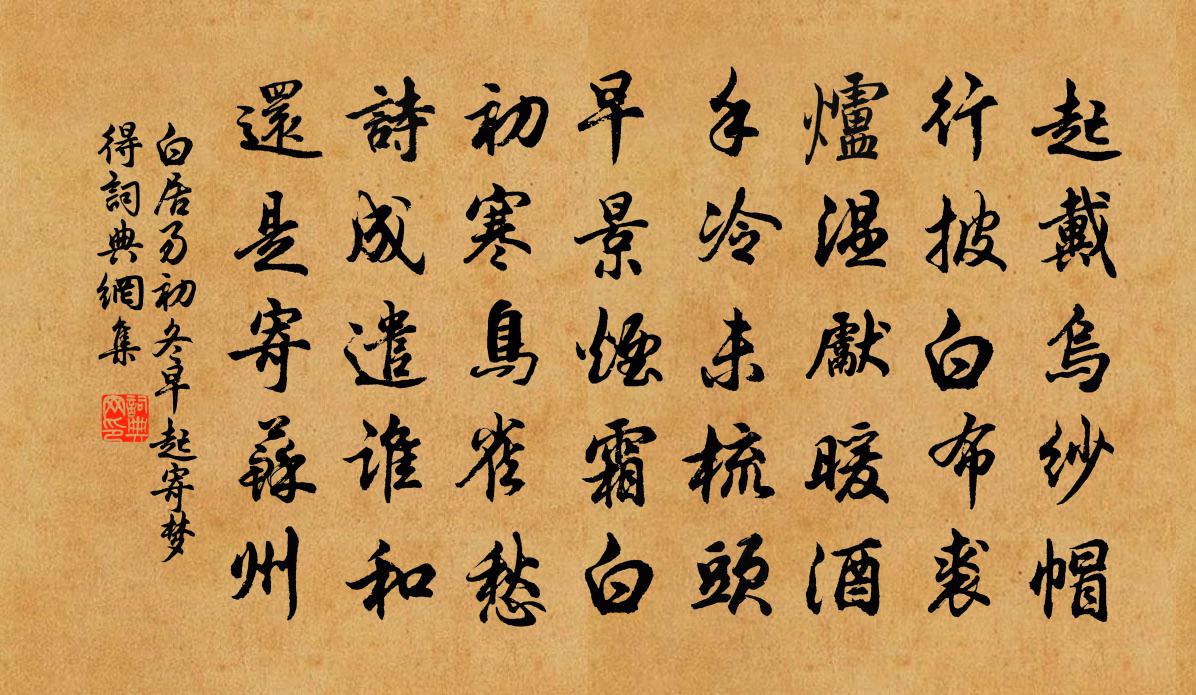 起戴烏紗帽
行披白布裘
爐温獻暖酒
手冷未梳頭
早景煙霜白
初寒鳥雀愁
詩成遣誰和
還是寄蘇州
白居易初冬早起寄梦
得詞典網集
詞典
网印